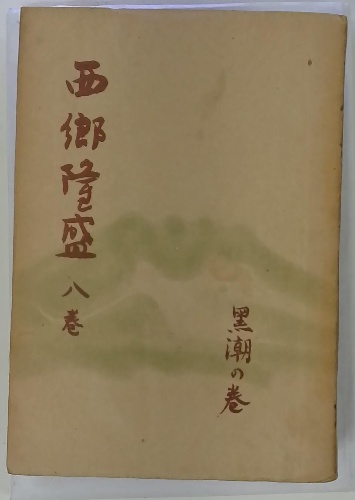 西郷隆盛
八巻
黒潮の巻